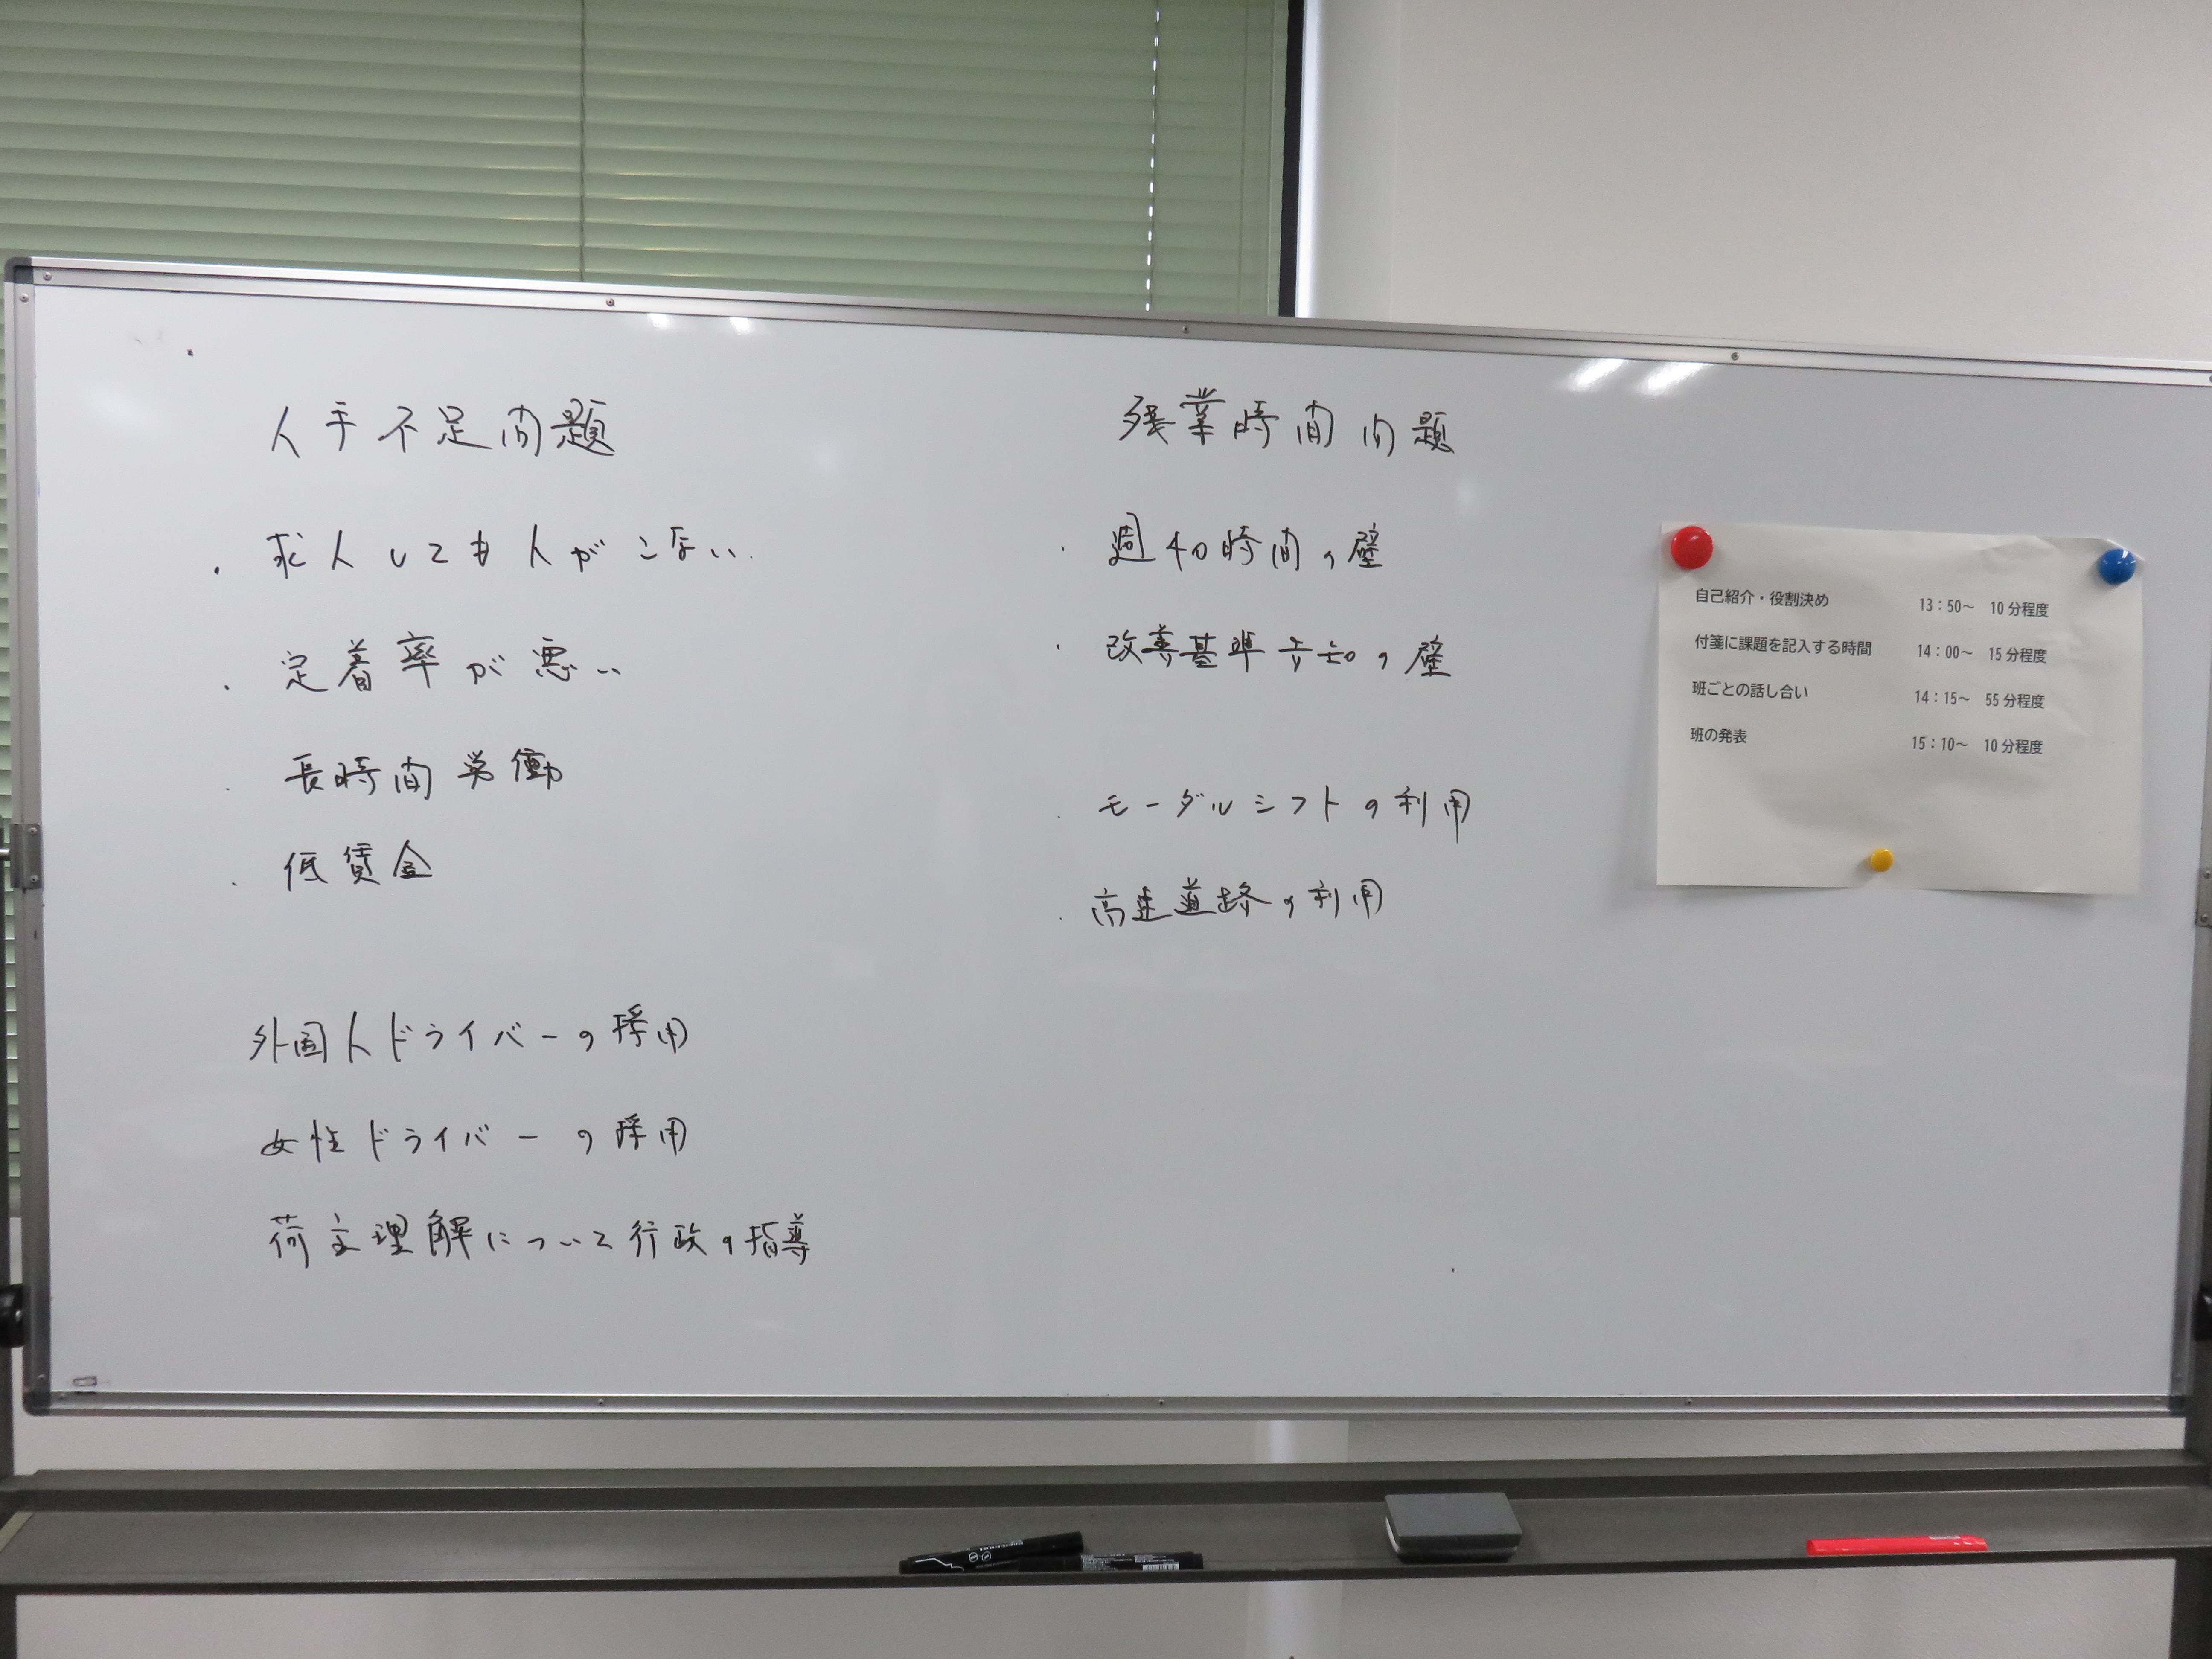 人手不足問題
・求人しても人がこない
・定着率が悪い
・長時間労働
・低賃金
外国人ドライバーの採用
女性ドライバーの採用
荷主理解について行政の指導
残業時間問題
・週40時間の壁
・改善基準告知の壁
・モーダルシフトの利用
・高速道路の利用
自己紹介・役割決め 13：50～ 10分程度
付箋に課題を記入する時間 14：00～ 15分程度
班ごとの話し合い 14：15～ 55分程度
班の発表 15：10～ 10分程度